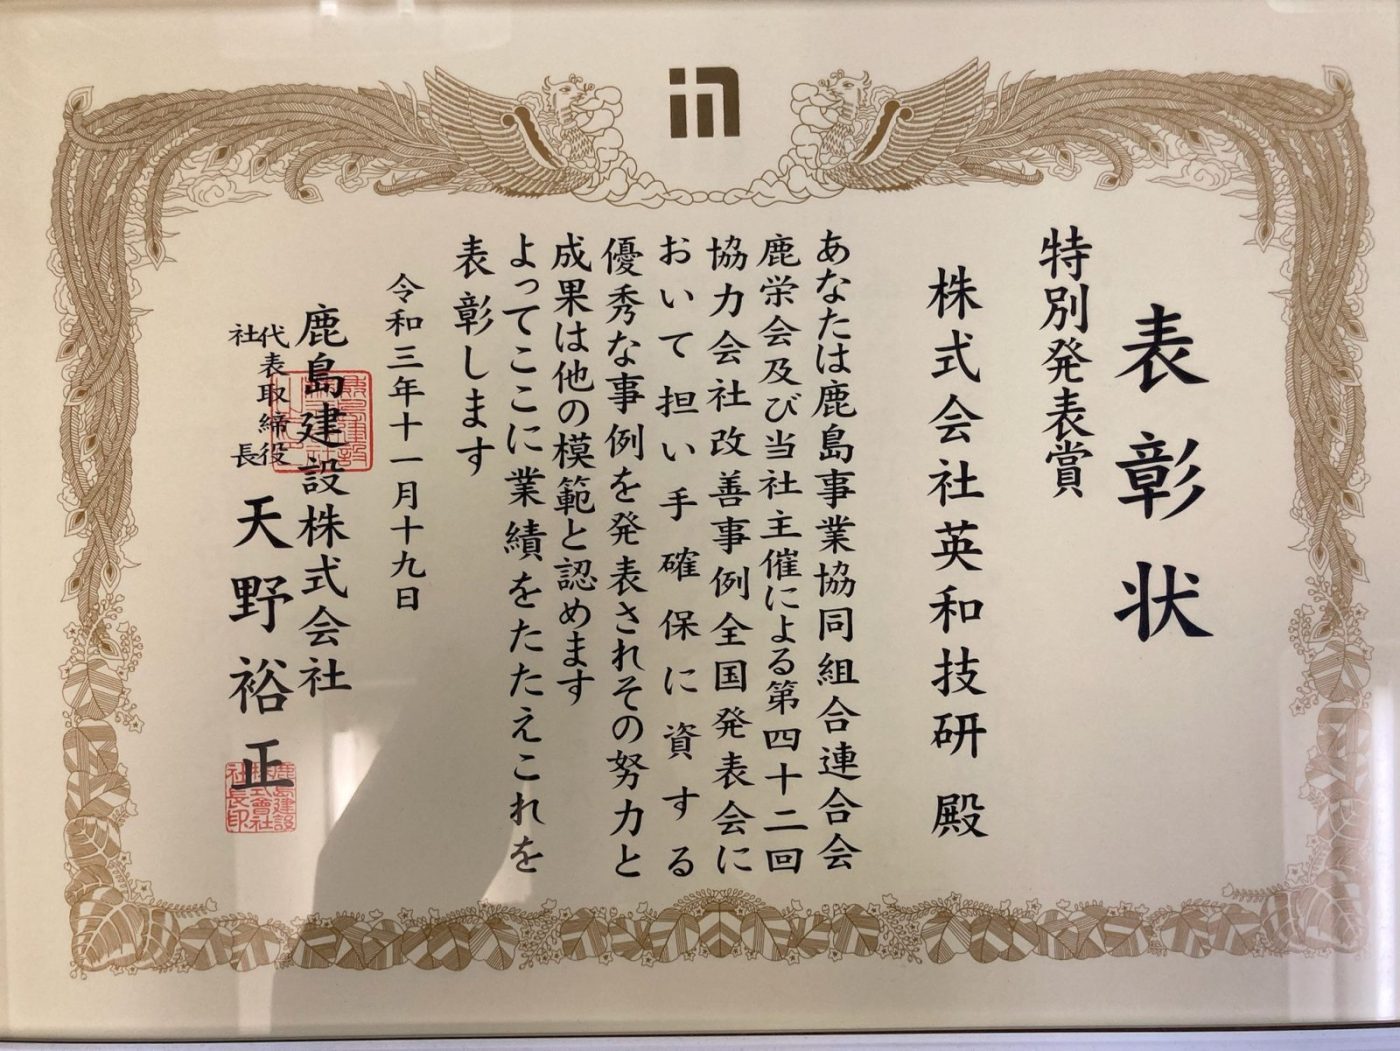 表彰状
特別発表賞
株式会社英和技研 殿
あなたは鹿島事業協同組合連合会
鹿栄会及び当社主催による第四十二回
協力会社改善事例全国発表会に
おいて担い手確保に資する
優秀な事例を発表されその努力と
成果は他の模範と認めます
よってここに業績をたたえこれを
表彰します
令和三年十一月十九日
鹿島建設株式会社
代表取締役
社長
天野裕正
鹿島建設
株式會社
社長印